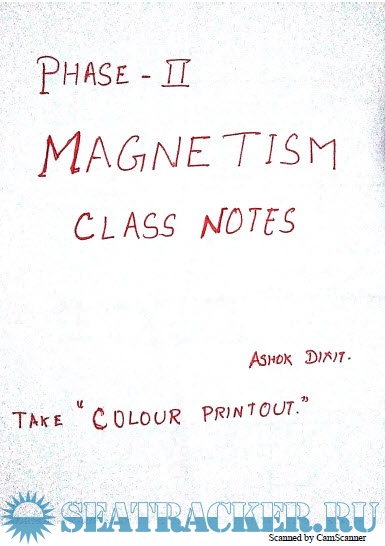 PHASE - II
MAGNETISM
CLASS NOTES
ASHOK DIXIT.
TAKE "COLOUR PRINTOUT."
SEATRACKER.RU
Scanned by CamScanner